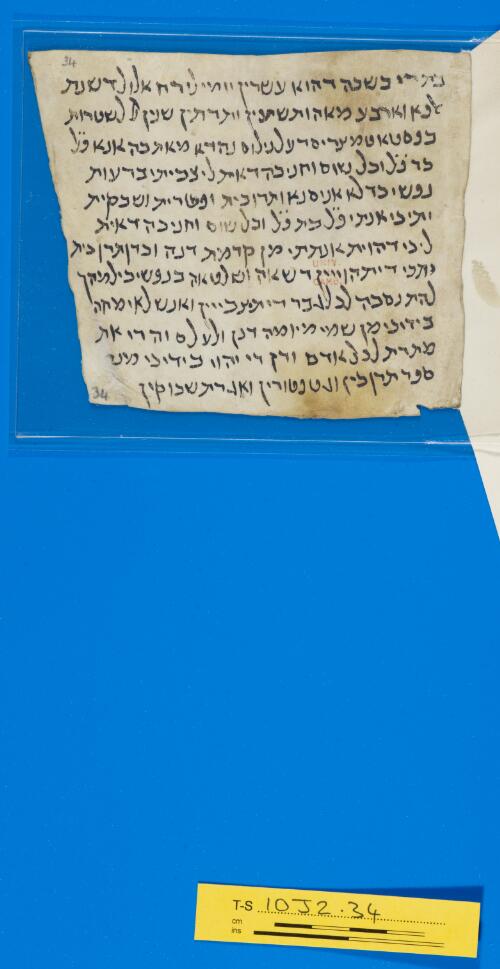 34
בתרי בשבה דהוא עשרין יומין לירח אלול דשנת
אלפא וארבע מאה ותשעין ותרתין שנין לשטרות
בפסטאט מצרים דעל נילוס נהרא מאתבה אנא פל
בר פל וכל שום וחניכה דאית לי צביתי ברעות
נפשי בדלא אניסנא ותרוכית ופטרית ושבקית
יתיכי אנתי פל בת פל וכל שום וחניכה דאית
ליכי דהוית אנתתי מן קדמת דנה וכדן תרוכית
יתכי דיתהוויין רשאה ושלטאה בנפשיכי למהך
להתנסבה לכל גבר די תצבייין ואנש לא ימחה
בידיכי מן שמי מיומה דנן ולעלם והרי את
מותרת לכל אדם ודן די יהוי ביליכי מני
ספר תרוכין וגט פטורין ואגרת שבוקין
34
UNIV
CAMB
T-S 10J2.34
cm
ins